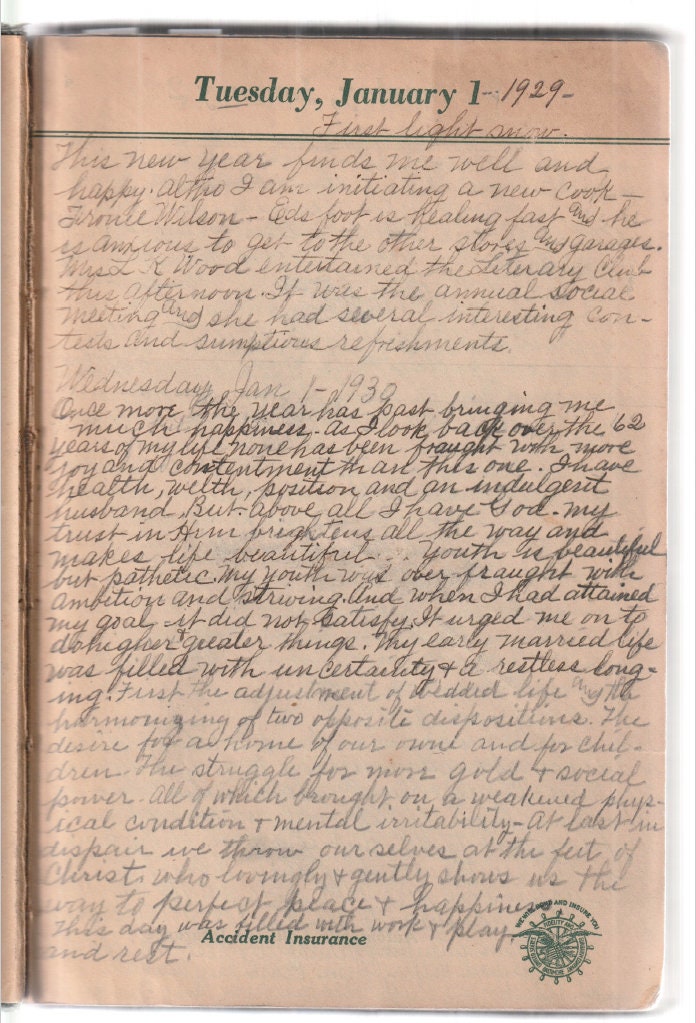 Tuesday, January 1 - 1929 -
First light snow.
This new year finds me well and
happy. altho I am initiating a new cook -
Wilson - Eds foot is healing fast and he
is anxious to get to the other stores and garages.
Mrs L K Wood entertained the Literary Club
this afternoon. It was the annual social
meeting and she had several interesting con-
tests and sumptious refreshments.
Wednesday Jan 1 - 1930
Once more the year has past bringing me
much happiness. as I look back over the 62
years of my life none has been fraught with more
joy and contentment than this one. I have
health, welth, position and an indulgent
husband. But above all I have God. my
trust in Him brightens all the way and
makes life beautiful... Youth is beautiful
but pathetic. my youth was over fraught with
ambition and striving. And when I had attained
my goal - it did not satisfy. It urged me on to
do higher greater things. My early married life
was filled with uncertainity & a restless long-
ing. First the adjustment of wedded life and the
harmonizing of two opposite dispositions. The
desire for a home of our owne and for chil-
dren. The struggle for more gold & social
power. all of which brought on a weakened phys-
ical condition & mental irritability - At last in
dispair we throw our selves at the feet of
Christ, who lovingly & gently shows us the
way to perfect peace & happiness
This day was filled with work & play
and rest.
Accident Insurance
WE WILL BOND AND INSURE YOU